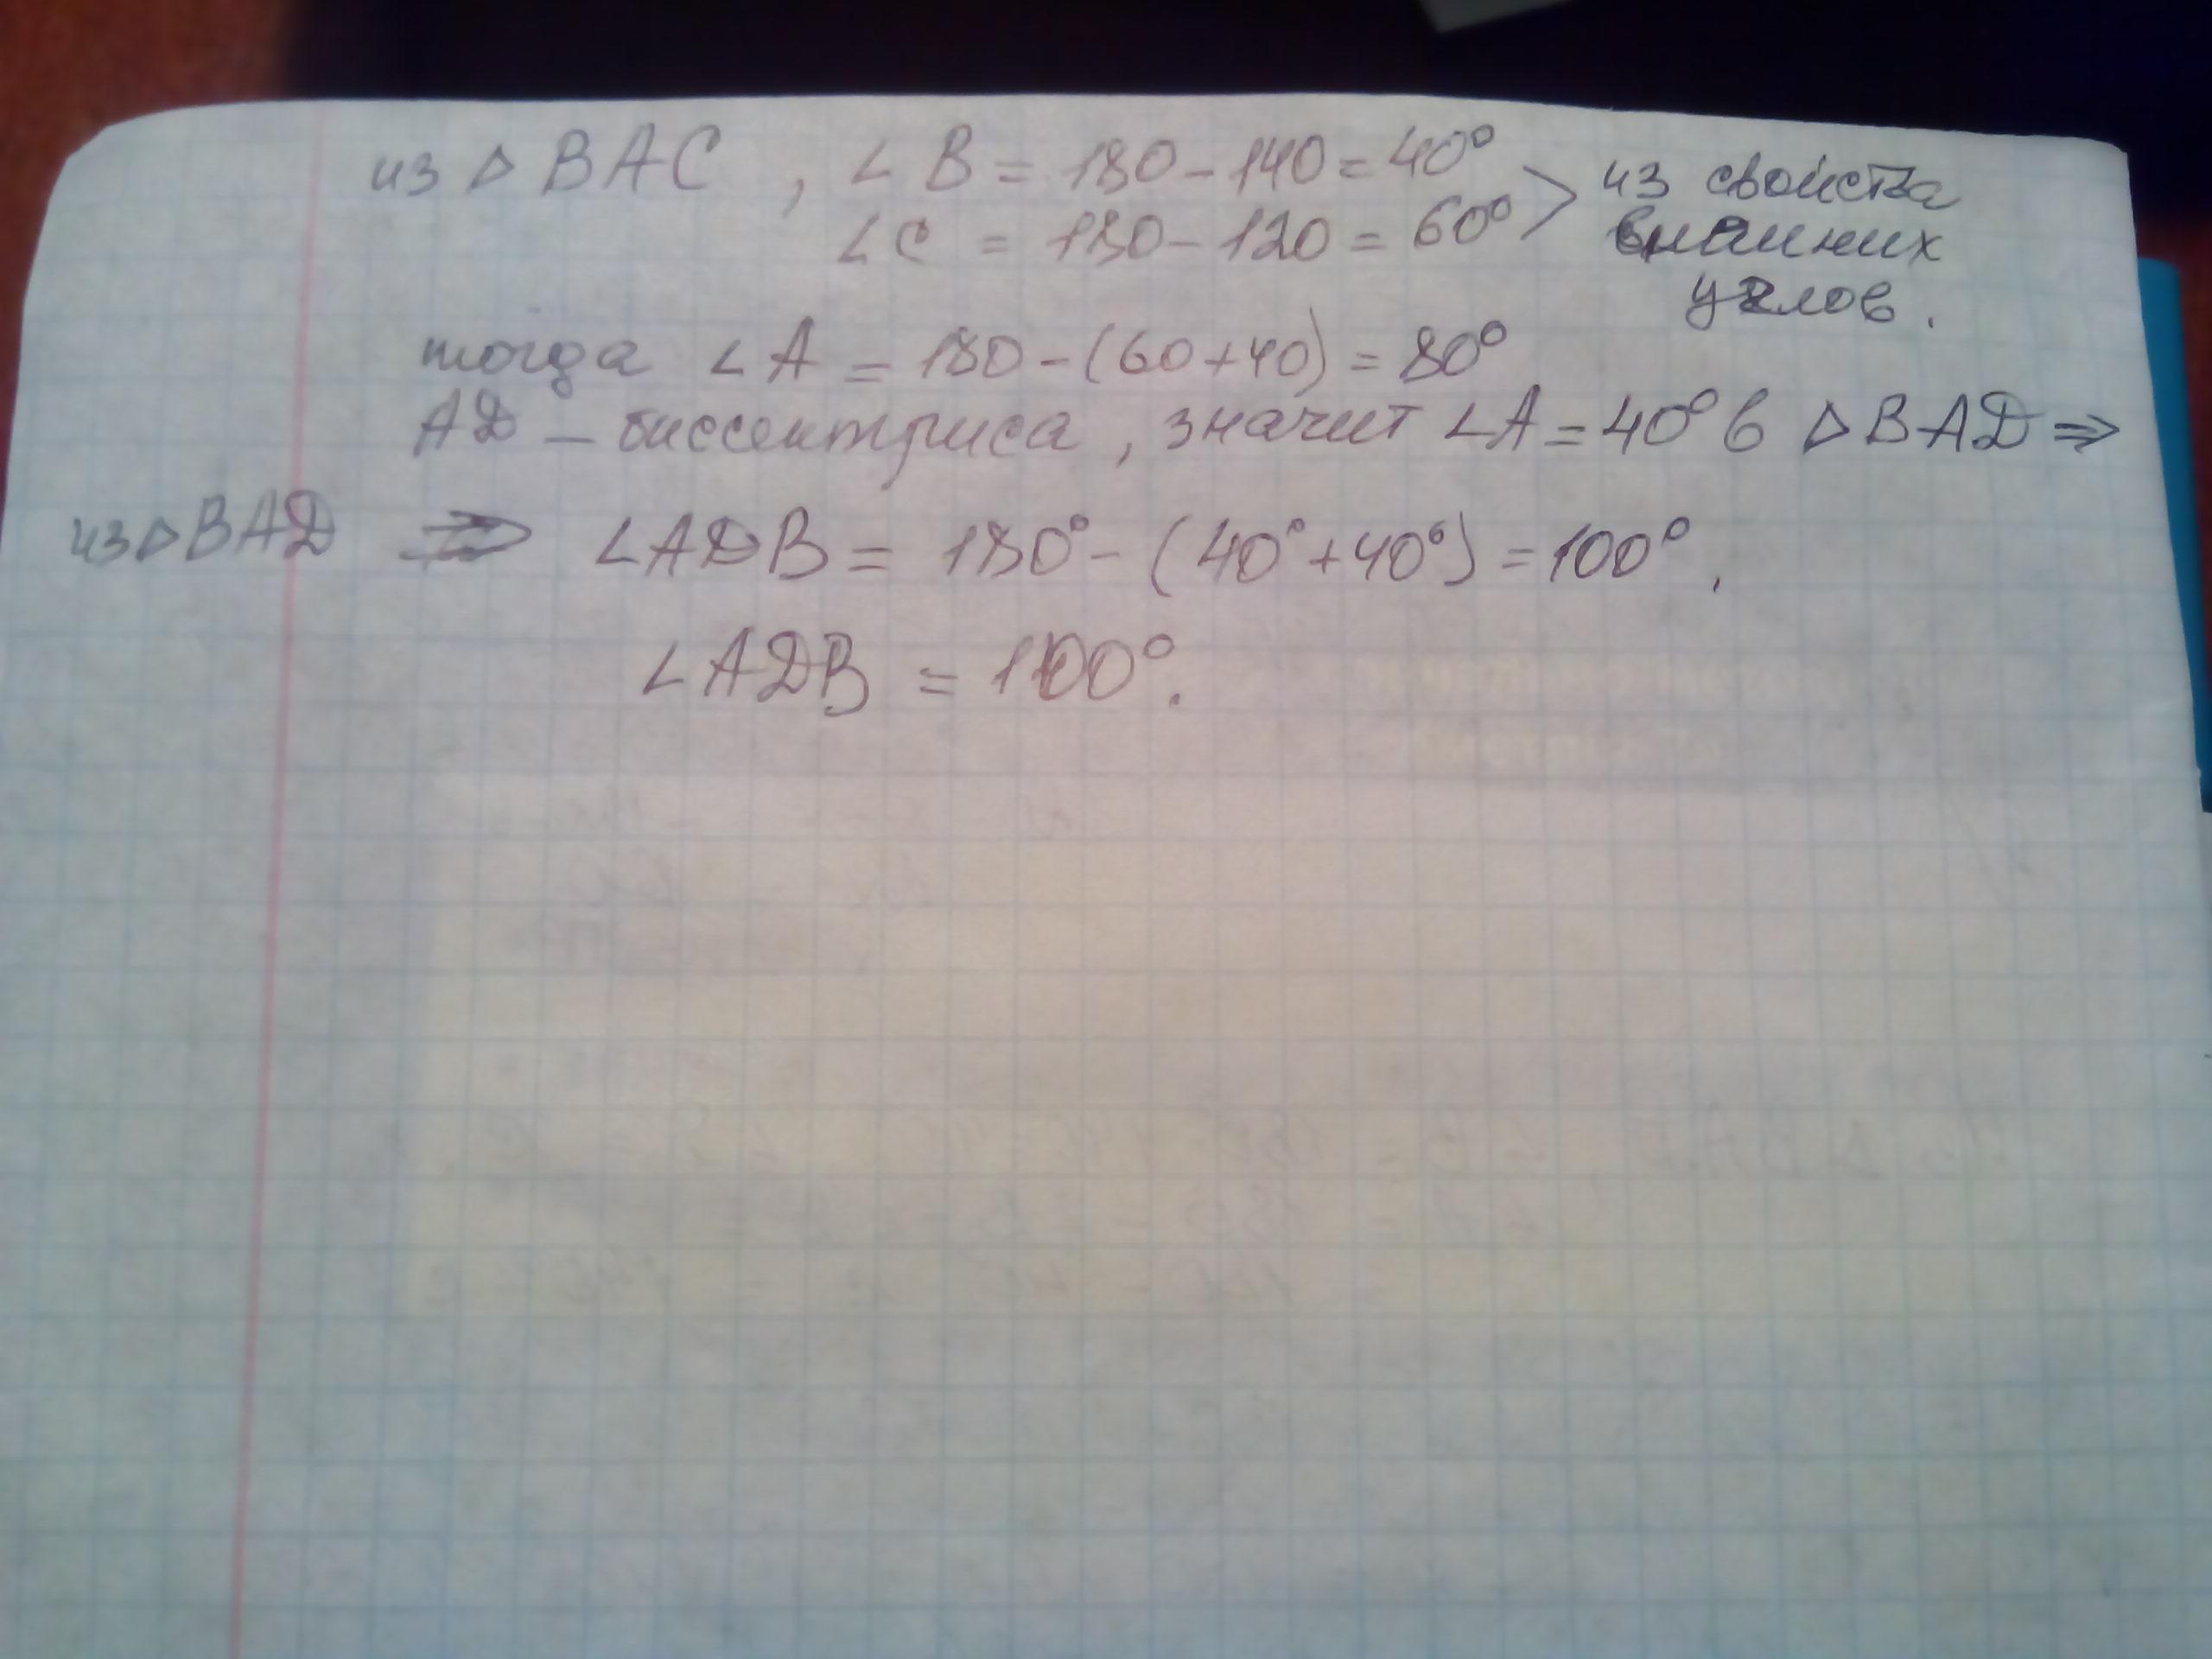 из △ BAC , ∠ B = 180 - 140 = 40°
∠ C = 180 - 120 = 60° > из свойства
внешних
углов.
тогда ∠ A = 180 - (60 + 40) = 80°
AD - биссектриса, значит ∠A = 40° в △ BAD ⇒
из △ BAD ⇒ ∠ADB = 180° - (40° + 40°) = 100°.
∠ADB = 100°.